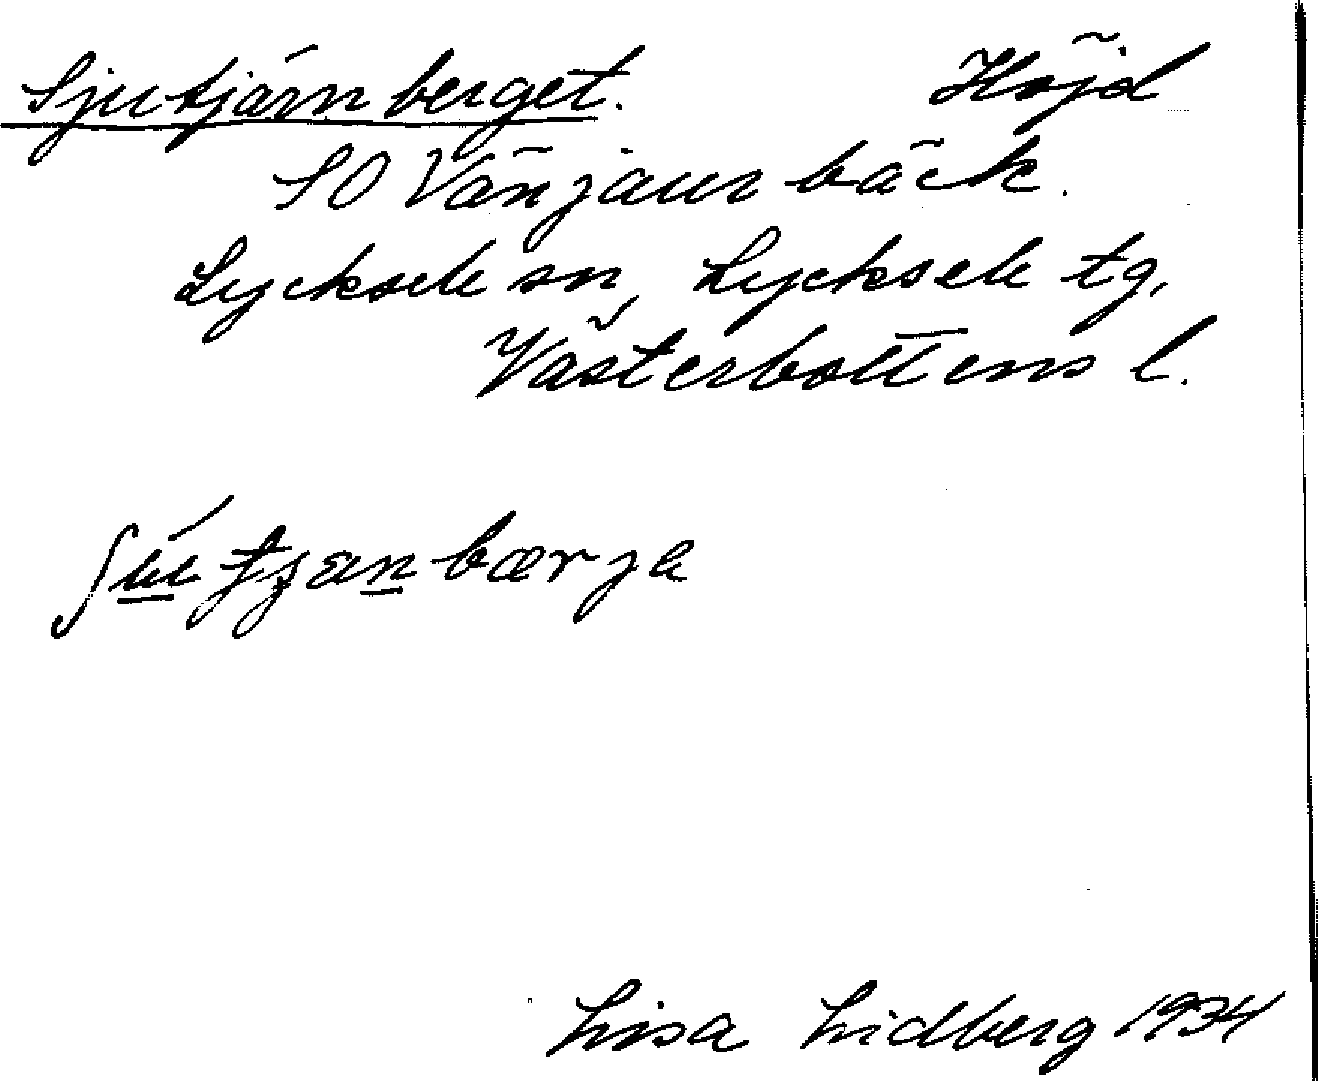 Sjutjärnberget. Höjd
SO Vänjaurbäck.
Lycksele sn, Lycksele tg,
Västerbottens l.
ʃú̲tjan̲bærja
Lisa Lidberg 1934